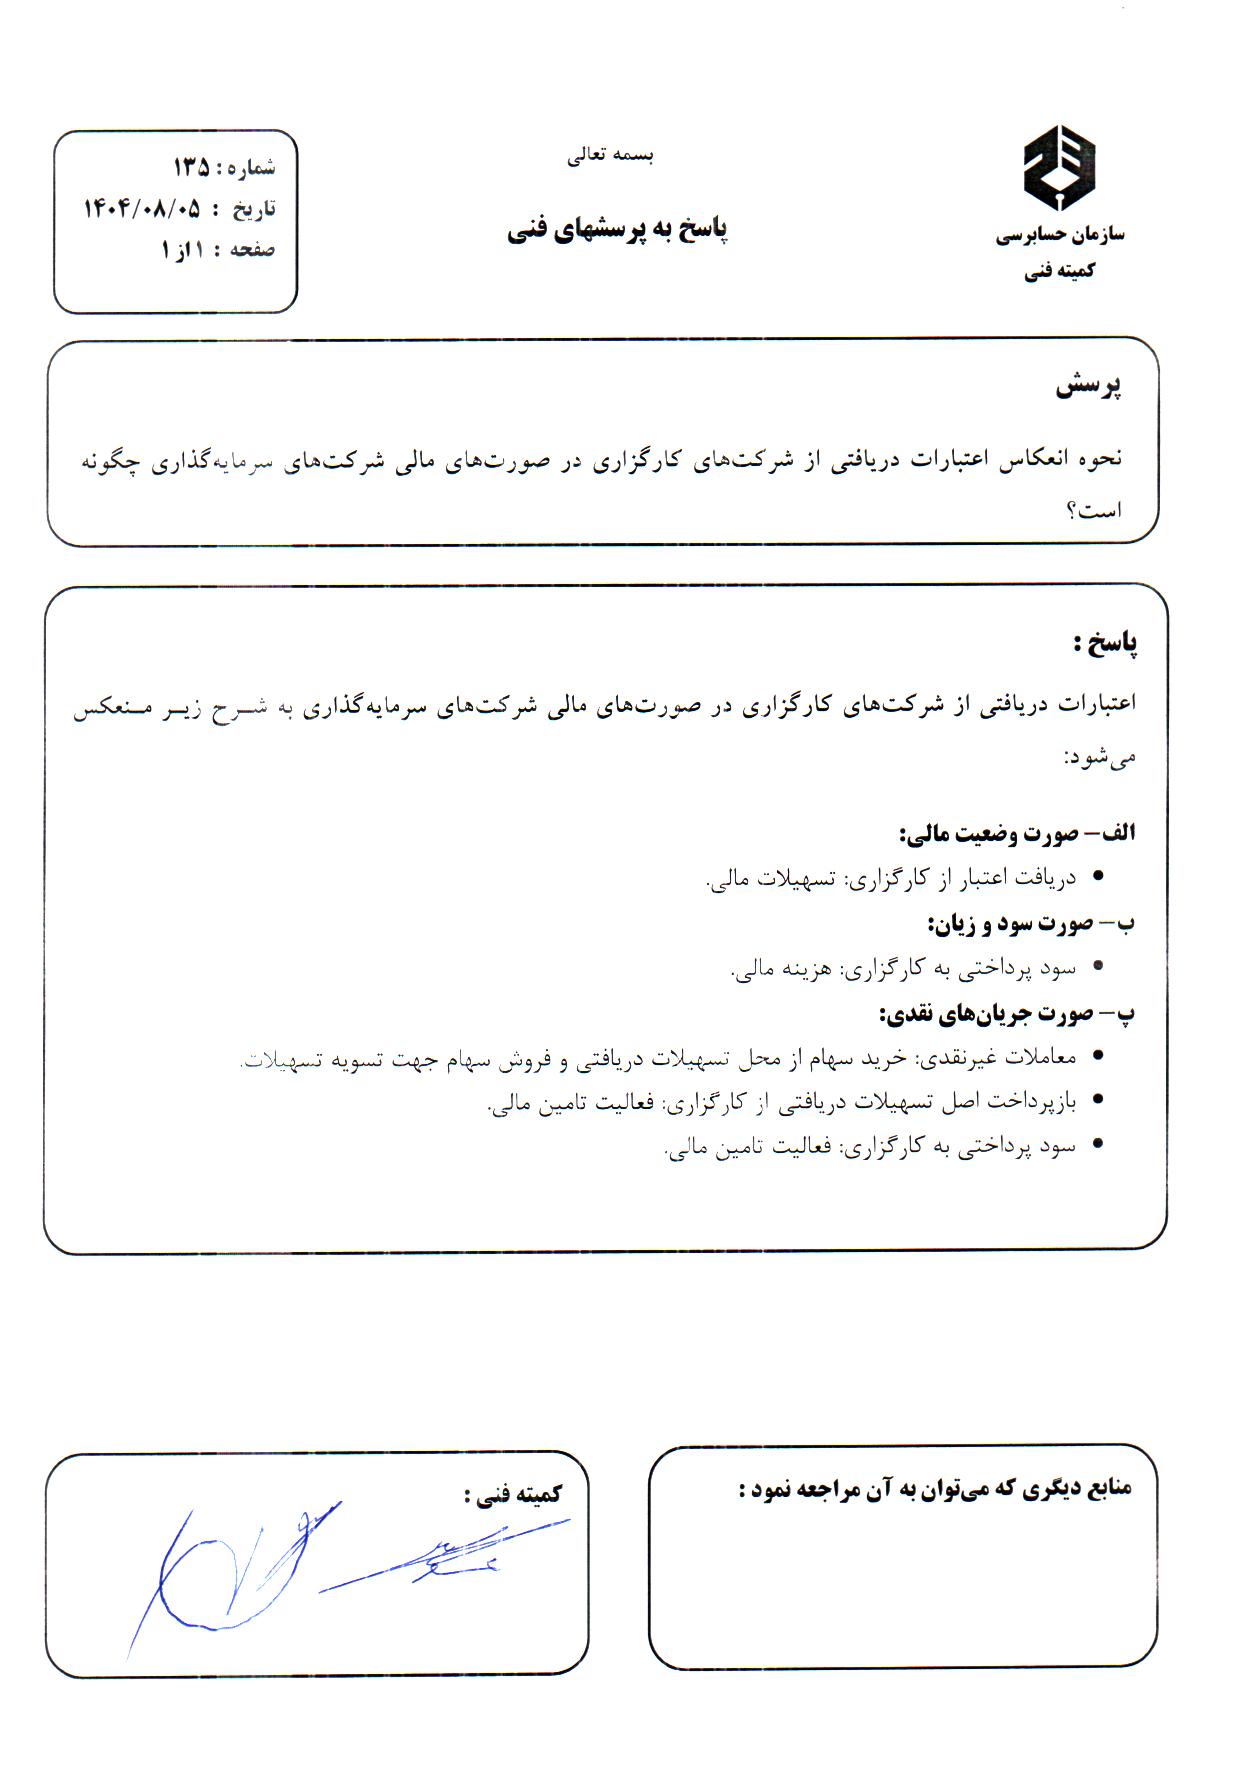 بسمه تعالی
پاسخ به پرسشهای فنی
سازمان حسابرسی
کمیته فنی
شماره : ۱۳۵
تاریخ : ۱۴۰۴/۰۸/۰۵
صفحه : ۱ از ۱
پرسش
نحوه انعکاس اعتبارات دریافتی از شرکت‌های کارگزاری در صورت‌های مالی شرکت‌های سرمایه‌گذاری چگونه
است؟
پاسخ :
اعتبارات دریافتی از شرکت‌های کارگزاری در صورت‌های مالی شرکت‌های سرمایه‌گذاری به شــرح زیــر مــنعکس
می‌شود:
الف– صورت وضعیت مالی:
• دریافت اعتبار از کارگزاری: تسهیلات مالی.
ب– صورت سود و زیان:
• سود پرداختی به کارگزاری: هزینه مالی.
پ– صورت جریان‌های نقدی:
• معاملات غیرنقدی: خرید سهام از محل تسهیلات دریافتی و فروش سهام جهت تسویه تسهیلات.
• بازپرداخت اصل تسهیلات دریافتی از کارگزاری: فعالیت تامین مالی.
• سود پرداختی به کارگزاری: فعالیت تامین مالی.
منابع دیگری که می‌توان به آن مراجعه نمود :
کمیته فنی :